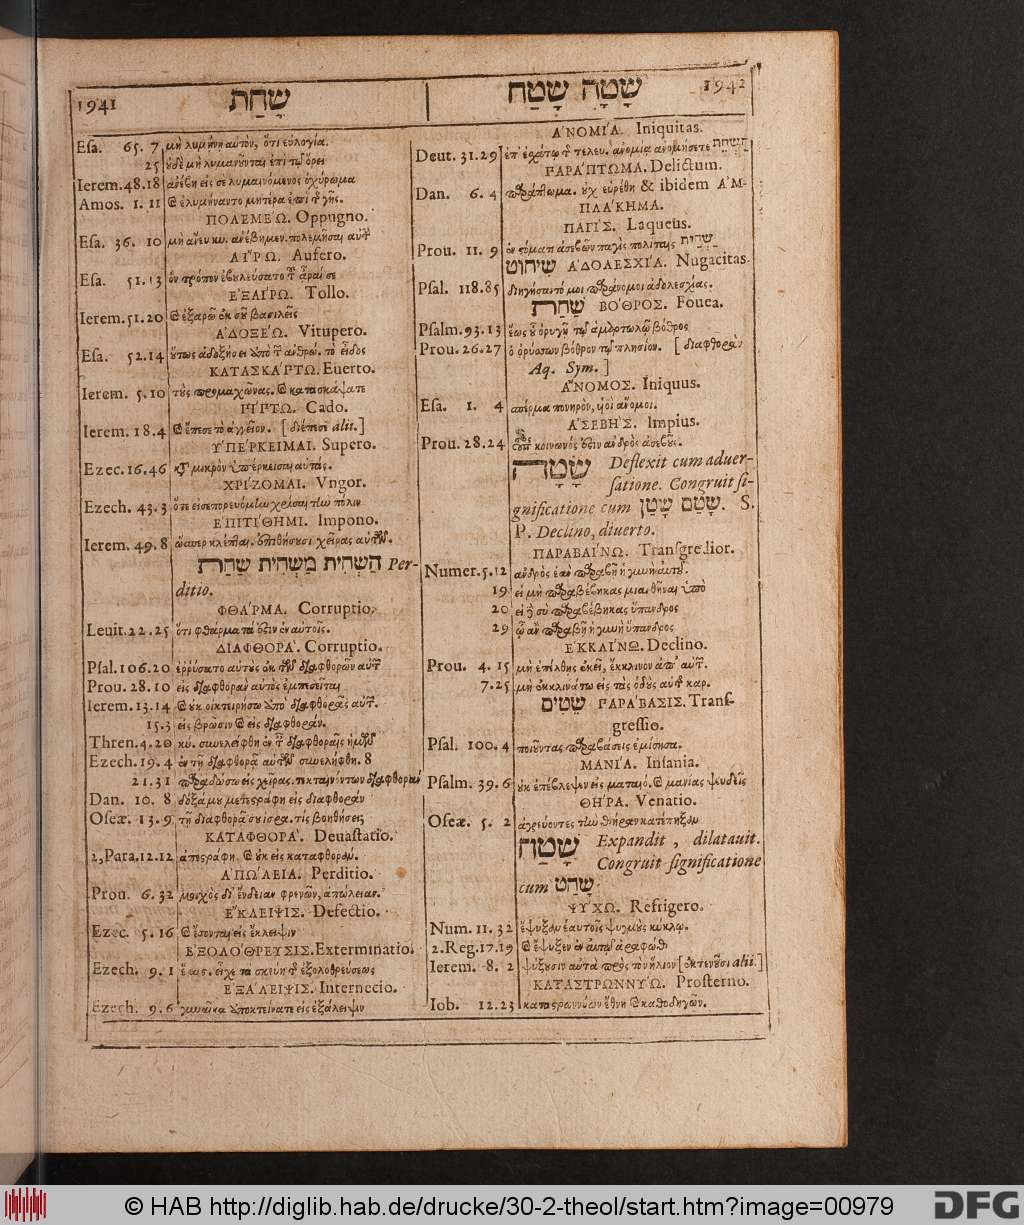 1941 שָׁחַת
Esa. 65. 7 μὴ λυμήνῃ αὐτὸν, ὅτι εὐλογία.
25 οὐδὲ μὴ λυμανοῦνται ἐπὶ τῷ ὄρει
Ierem. 48.18 εἰς σε λυμαινόμενος ὀχύρωμα
Amos. 1. 11 ἐλυμήναντο μητέρα ἐπὶ τ γῆς.
ΠΟΛΕΜΕΩ. Oppugno.
Esa. 36. 10 μὴ ἄνευ κυ. ἀνέβημεν πολεμῆσαι αὐτ
ΑΙΡΩ. Aufero.
Esa. 51.13 ὃν τρόπον ἐβουλεύσατο τ ἆραί σε
ΕΞΑΙΡΩ. Tollo.
Ierem. 51.20 ἐξαρῶ ἐκ σοῦ βασιλεῖς
ΑΔΟΞΕΩ. Vitupero.
Esa. 52.14 οὕτως ἀδοξήσει ὑπὸ τ ἀνθρώ. τὸ εἶδος
ΚΑΤΑΣΚΑΠΤΩ. Euerto.
Ierem. 5.10 τοὺς προμαχῶνας. κατασκάψατε
ΠΙΠΤΩ. Cado.
Ierem. 18.4 ἔπεσε τὸ ἀγγεῖον. [διέπεσε alii.]
ΥΠΕΡΚΕΙΜΑΙ. Supero.
Ezec. 16.46 μικρὸν ὑπέρκεισαι αὐτάς.
ΧΡΙΖΟΜΑΙ. Vngor.
Ezech. 43.3 ὅτε εἰσεπορευόμην χρῖσαι τὴν πόλιν
ΕΠΙΤΙΘΗΜΙ. Impono.
Ierem. 49.8 ὥσπερ κλέπται. ἐπιθήσουσι χεῖρας αὐτῶν.
הַשְׁחִית מַשְׁחִית שַׁחַת Per-
ditio.
ΦΘΑΡΜΑ. Corruptio.
Leuit. 22.25 ὅτι φθάρματά ἐστιν ἐν αὐτοῖς.
ΔΙΑΦΘΟΡΑ. Corruptio.
Psal. 106.20 ἐρρύσατο αὐτοὺς ἐκ τῶν διαφθορῶν αὐτ
Prou. 28.10 εἰς διαφθορὰν αὐτὸς ἐμπεσεῖται
Ierem. 13.14 οὐκ οἰκτειρήσω ἀπὸ διαφθορᾶς αὐτ.
15.3 εἰς βρῶσιν εἰς διαφθοράν.
Thren. 4.20 κυ. συνελείφθη ἐν τ διαφθοραῖς ἡμῶν
Ezech. 19.4 ἐν τῇ διαφθορᾷ αὐτῶν συνελήφθη. 8
21.31 παραδώσω εἰς χεῖρας. τεκταινόντων διαφθορὰν
Dan. 10. 8 δόξα μου μετεστράφη εἰς διαφθοράν
Oseæ. 13.9 τῇ διαφθορᾷ σου ισρα. τίς βοηθήσει;
ΚΑΤΑΦΘΟΡΑ. Deuastatio.
2,Para. 12.12 ἀπεστράφη. οὐκ εἰς καταφθοράν.
ΑΠΩΛΕΙΑ. Perditio.
Prou. 6.32 μοιχὸς δι' ἔνδειαν φρενῶν, ἀπώλειαν.
ΕΚΛΕΙΨΙΣ. Defectio.
Ezec. 5.16 ἔσονται εἰς ἔκλειψιν
ΕΞΟΛΟΘΡΕΥΣΙΣ. Exterminatio.
Ezech. 9.1 εἶχε τὰ σκεύη τ ἐξολοθρεύσεως
ΕΞΑΛΕΙΨΙΣ. Internecio.
Ezech. 9.6 γυναῖκα ἀποκτείνατε εἰς ἐξάλειψιν
שָׁטָה שָׁטַח 1942
ΑΝΟΜΙΑ. Iniquitas.
Deut. 31.29 ἐπ' ἐσχάτῳ τ τελευ. ἀνομίᾳ ἀνομήσετε הַשְׁחֵת
ΠΑΡΑΠΤΩΜΑ. Delictum.
Dan. 6. 4 παράπτωμα. οὐχ εὑρέθη & ibidem ΑΜ-
ΠΛΑΚΗΜΑ.
ΠΑΓΙΣ. Laqueus.
Prou. 11. 9 ἐν στόματι ἀσεβῶν παγὶς πολίταις שַׁחֵית
שִׁיחוֹת ΑΔΟΛΕΣΧΙΑ. Nugacitas.
Psal. 118.85 διηγήσαντό μοι παράνομοι ἀδολεσχίας.
שַׁחַת ΒΟΘΡΟΣ. Fouea.
Psalm. 93.13 ἕως οὗ ὀρυγῇ τῷ ἁμαρτωλῷ βόθρος
Prou. 26.27 ὁ ὀρύσσων βόθρον τῷ πλησίον. [διαφθορὰν
Aq. Sym.]
ΑΝΟΜΟΣ. Iniquus.
Esa. 1. 4 σπέρμα πονηρὸν, υἱοὶ ἄνομοι.
ΑΣΕΒΗΣ. Impius.
Prou. 28.24 κοινωνός ἐστιν ἀνδρὸς ἀσεβοῦς.
שָׂטָה Deflexit cum aduer-
satione. Congruit si-
gnificatione cum שָׂטַם שָׂטַן. S.
P. Declino, diuerto.
ΠΑΡΑΒΑΙΝΩ. Transgredior.
Numer. 5.12 ἀνδρὸς ἐὰν παραβῇ ἡ γυνὴ αὐτοῦ.
19 εἰ μὴ παραβέβηκας μιανθῆναι ὑπὸ
20 εἰ σὺ παραβέβηκας ὕπανδρος
29 ᾧ ἂν παραβῇ ἡ γυνὴ ὕπανδρος
ΕΚΚΛΙΝΩ. Declino.
Prou. 4. 15 μὴ ἐπέλθῃς ἐκεῖ, ἔκκλινον ἀπ' αὐτ.
7.25 μὴ ἐκκλινάτω εἰς τὰς ὁδοὺς αὐτ καρ.
שֵׂטִים ΠΑΡΑΒΑΣΙΣ. Trans-
gressio.
Psal. 100.4 ποιοῦντας παραβάσεις ἐμίσησα.
ΜΑΝΙΑ. Insania.
Psalm. 39.6 οὐκ ἐπέβλεψεν εἰς ματαιό. μανίας ψευδεῖς
ΘΗΡΑ. Venatio.
Oseæ. 5. 2 ἀγρεύοντες τὴν θήραν κατέπηξαν
שָׁטַח Expandit, dilatauit.
Congruit significatione
cum שָׁחַט.
ΨΥΧΩ. Refrigero.
Num. 11. 32 ἔψυξαν ἑαυτοῖς ψυγμοὺς κύκλῳ.
2.Reg. 17.19 ἔψυξεν ἐν αὐτῷ ἀραφώθ
Ierem. 8. 2 ψύξουσιν αὐτὰ πρὸς τὸν ἥλιον [ἐκτενοῦσι alii.]
ΚΑΤΑΣΤΡΩΝΝΥΩ. Prosterno.
Iob. 12.23 καταστρωννύων ἔθνη καθοδηγῶν.
© HAB http://diglib.hab.de/drucke/30-2-theol/start.htm?image=00979
DFG